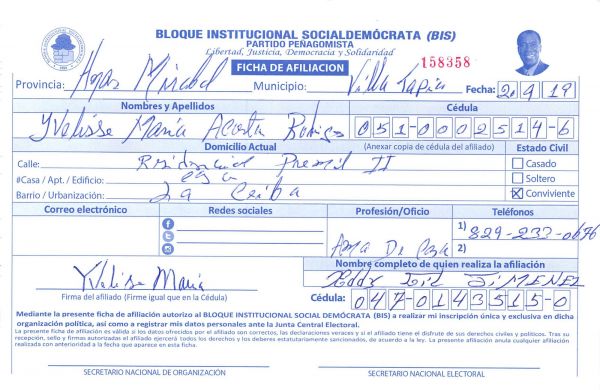 BLOQUE INSTITUCIONAL SOCIALDEMÓCRATA (BIS)
PARTIDO PEÑAGOMISTA
Libertad, Justicia, Democracia y Solidaridad
FICHA DE AFILIACION
158358
Provincia: Municipio: Villa Tapia Fecha: 2 9 19
Nombres y Apellidos Cédula
Yvelisse María Acosta 051-0002514-6
Domicilio Actual (Anexar copia de cédula del afiliado) Estado Civil
Calle: Residencial II Casado
#Casa / Apt. / Edificio: Soltero
Barrio / Urbanización: La Ceiba X Conviviente
Correo electrónico Redes sociales Profesión/Oficio Teléfonos
1) 829-233-0676
Ama De Casa 2)
Nombre completo de quien realiza la afiliación
Yvelisse María Eddy Gil JIMENEZ
Firma del afiliado (Firme igual que en la Cédula) Cédula: 047-0143515-0
Mediante la presente ficha de afiliación autorizo al BLOQUE INSTITUCIONAL SOCIAL DEMÓCRATA (BIS) a realizar mi inscripción única y exclusiva en dicha
organización política, así como a registrar mis datos personales ante la Junta Central Electoral.
La presente ficha de afiliación es válida si los datos ofrecidos por el afiliado son correctos, las declaraciones veraces y si el afiliado tiene el disfrute de sus derechos civiles y políticos. Tras su
recepción, sello y firmas autorizadas el afiliado ejercerá todos los derechos y los deberes estatutariamente sancionados, de acuerdo a la ley. La presente afiliación anula cualquier afiliación
realizada con anterioridad a la fecha que aparece en esta ficha.
SECRETARIO NACIONAL DE ORGANIZACIÓN SECRETARIO NACIONAL ELECTORAL